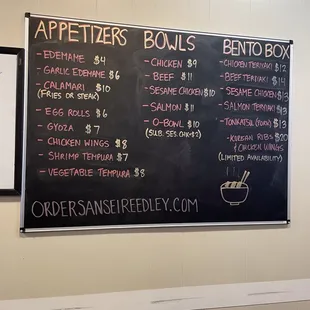 APPETIZERS
- EDEMAME $4
- GARLIC EDEMAME $6
- CALAMARI $10
(FRIES OR STEAK)
- EGG ROLLS $6
- GYOZA $7
- CHICKEN WINGS $8
- SHRIMP TEMPURA $7
- VEGETABLE TEMPURA $8
BOWLS
- CHICKEN $9
- BEEF $11
- SESAME CHICKEN $10
- SALMON $11
- O-BOWL $10
(SUB. SES. CHX $2)
BENTO BOX
- CHICKEN TERIYAKI $12
- BEEF TERIYAKI $14
- SESAME CHICKEN $13
- SALMON TERIYAKI $13
- TONKATSU $13
- KOREAN RIBS $20
+ CHICKEN WINGS
(LIMITED AVAILABILITY)
ORDERSANSEIREEDLEY.COM